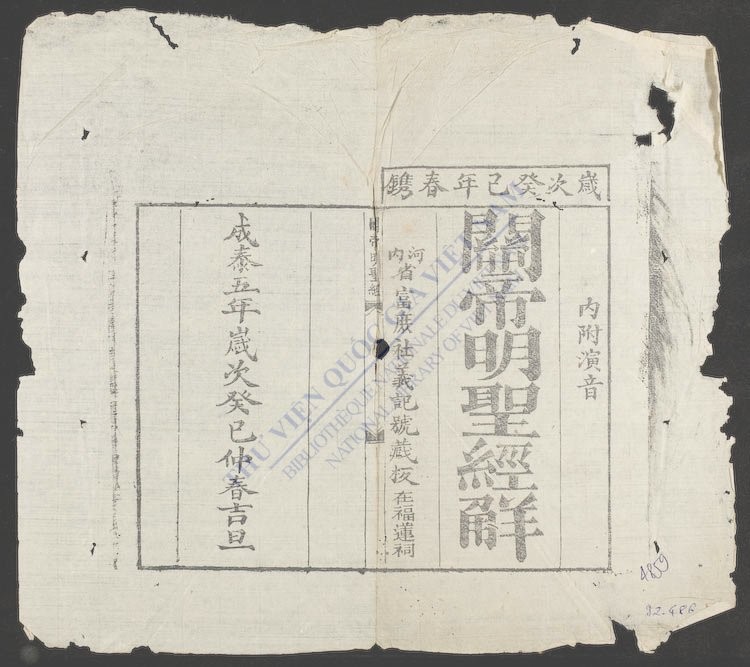 歲次癸巳年春鐫
內附演音
關帝明聖經解
河內省富庶社義記號藏板在福蓮祠
關帝明聖經
成泰五年歲次癸巳仲春吉旦
THƯ VIỆN QUỐC GIA VIỆT NAM
BIBLIOTHÈQUE NATIONALE DU VIETNAM
NATIONAL LIBRARY OF VIETNAM
4859